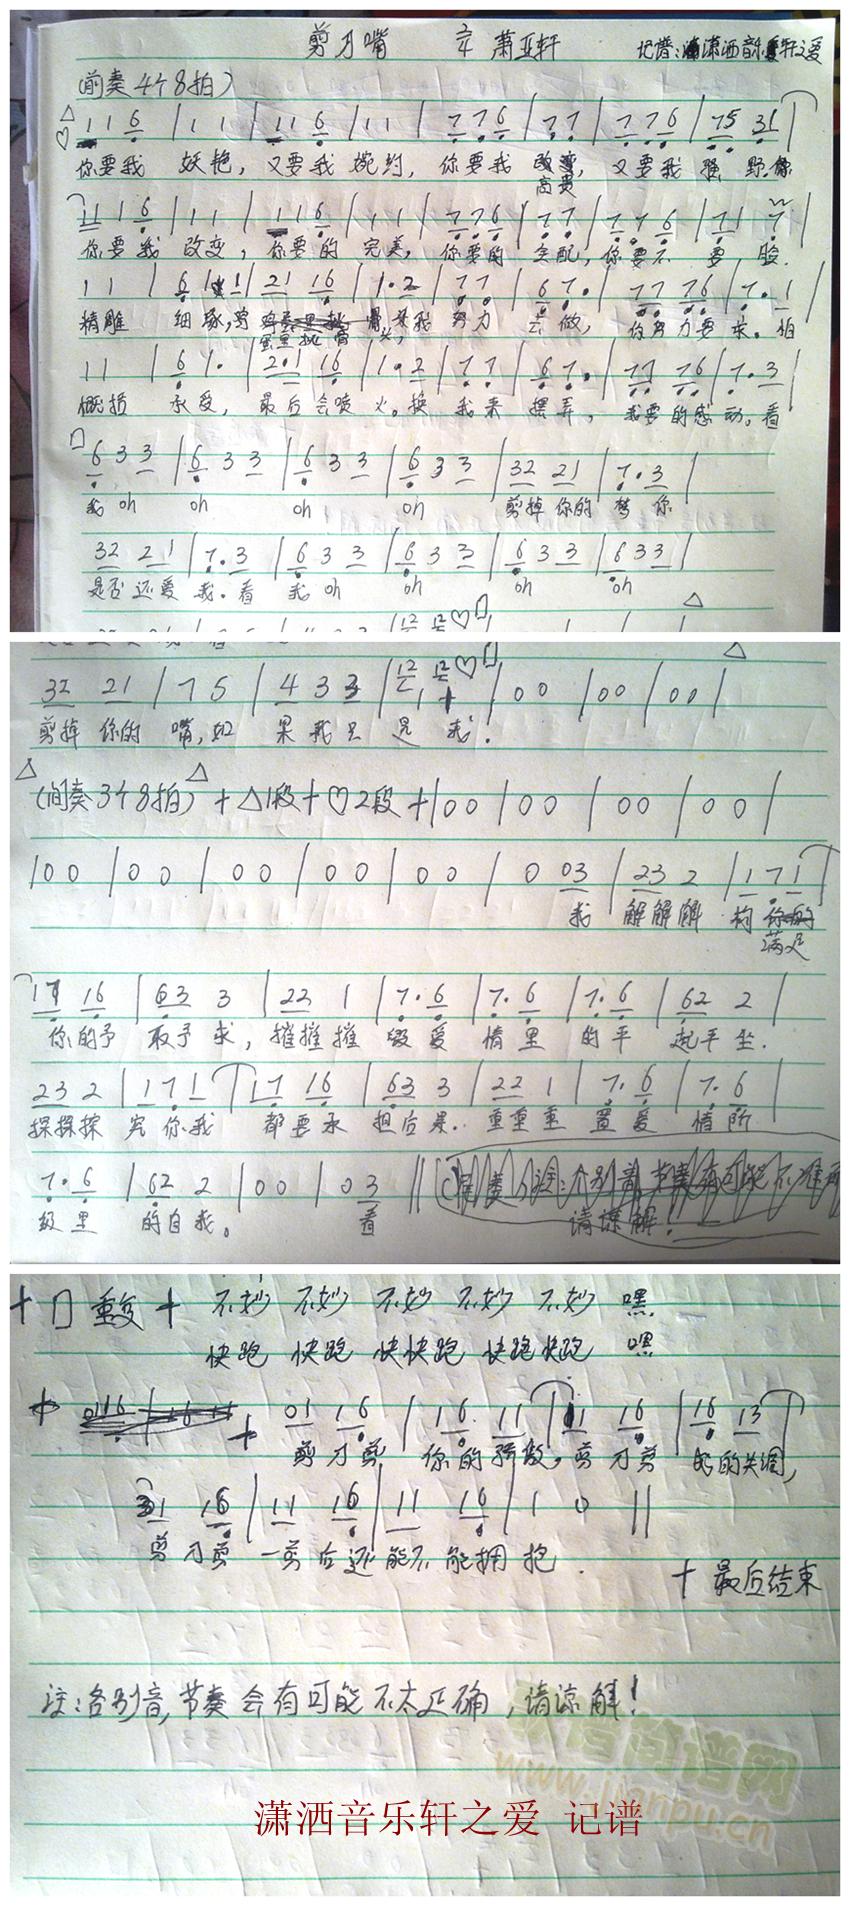 剪刀嘴 2/4 萧亚轩 记谱:潇洒音乐轩之爱
(前奏4个8拍)
1 1 6 | 1 1 | 1 1 6 | 1 1 | 7 7 6 | 7 7 | 7 7 6 | 75 31 |
你要我 妖艳, 又要我 婉约, 你要我 高贵, 又要我 狂野.你
11 1 6 | 1 1 | 1 1 6 | 1 1 | 7 7 6 | 7 7 | 7 7 6 | 7 1 7 |
你要我 改变, 你要的 完美, 你要的 全配, 你要不 要 脸.
1 1 | 6 1 1 | 21 16 | 1·2 | 7 7 | 6 7· | 77 76 | 7· 1
精雕 细琢,穷 蛋里挑骨 头, 我 努力 去做, 你努力要求. 怕
1 1 | 6 1· | 2·1 16 | 1·2 | 7 7 | 6 7· | 77 76 | 7·3 |
概括 承受, 最后会喷火。换 我来 摆弄, 我要的感动。看
6 3 3 | 6 3 3 | 6 3 3 | 6 3 3 | 32 21 | 7·3 |
我 oh oh oh oh 剪掉你的 梦 你
32 21 | 7·3 | 6 3 3 | 6 3 3 | 6 3 3 | 6 3 3 |
是否还爱 我. 看 我 oh oh oh oh
32 21 | 7 5 | 4 3 3 | 12 12 | 00 | 00 | 00 |
剪掉 你的 嘴,如 果 我 只 是 我.
△(间奏3个8拍)△ + △1段 + ♡2段 + | 00 | 00 | 00 | 00 |
| 00 | 00 | 00 | 00 | 00 | 0 03 | 23 2 | 1 7 1 |
我 解解解 构 你
满足
17 16 | 63 3 | 22 1 | 7·6 | 7·6 | 7·6 | 62 2 |
你的予 取予 求, 摧摧摧 毁 爱 情 里 的 平 起平 坐.
23 2 | 1 7 1 | 17 16 | 63 3 | 22 1 | 7·6 | 7·6 |
探探探 究 你我 都要承 担后果. 重重重 置 爱 情 阶
7·6 | 62 2 | 00 | 0 3 ||
级 里 的自我。 看 请谅解!
+ 重复 + 不妙 不妙 不妙 不妙 不妙 嘿
快跑 快跑 快快跑 快跑快跑 嘿
+ 01 16 | 16 11 | 11 16 | 16 13 |
剪刀剪 你的骄傲, 剪刀剪 的失调,
31 16 | 11 16 | 11 16 | 1 0 ||
剪刀剪 一剪后还 能不能拥抱.
+ 最后结束
注:各别音,节奏会有可能不太正确,请谅解!
简谱网
www.jianpu.cn
潇洒音乐轩之爱 记谱